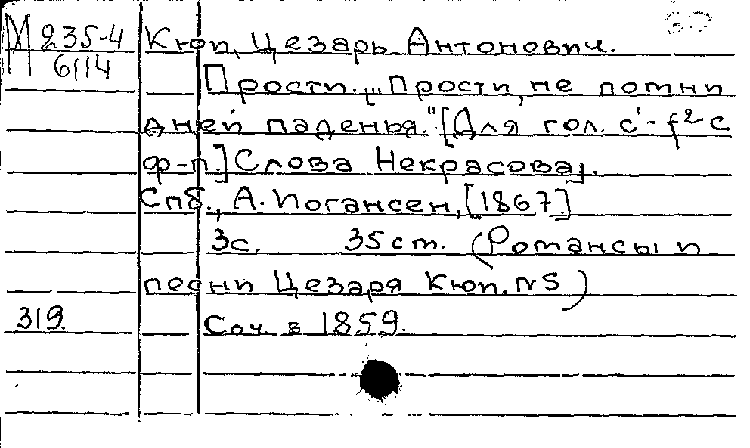 М 235-4
6114
Кюи, Цезарь Антонович.
Прости. „Прости, не помни
дней паденья." [Для гол. c¹-f² с
ф-п.] Слова Некрасова].
Спб., А. Иогансен, [1867]
3с. 35 cm. (Романсы и
песни Цезаря Кюи. №5)
319.
Соч. в 1859.